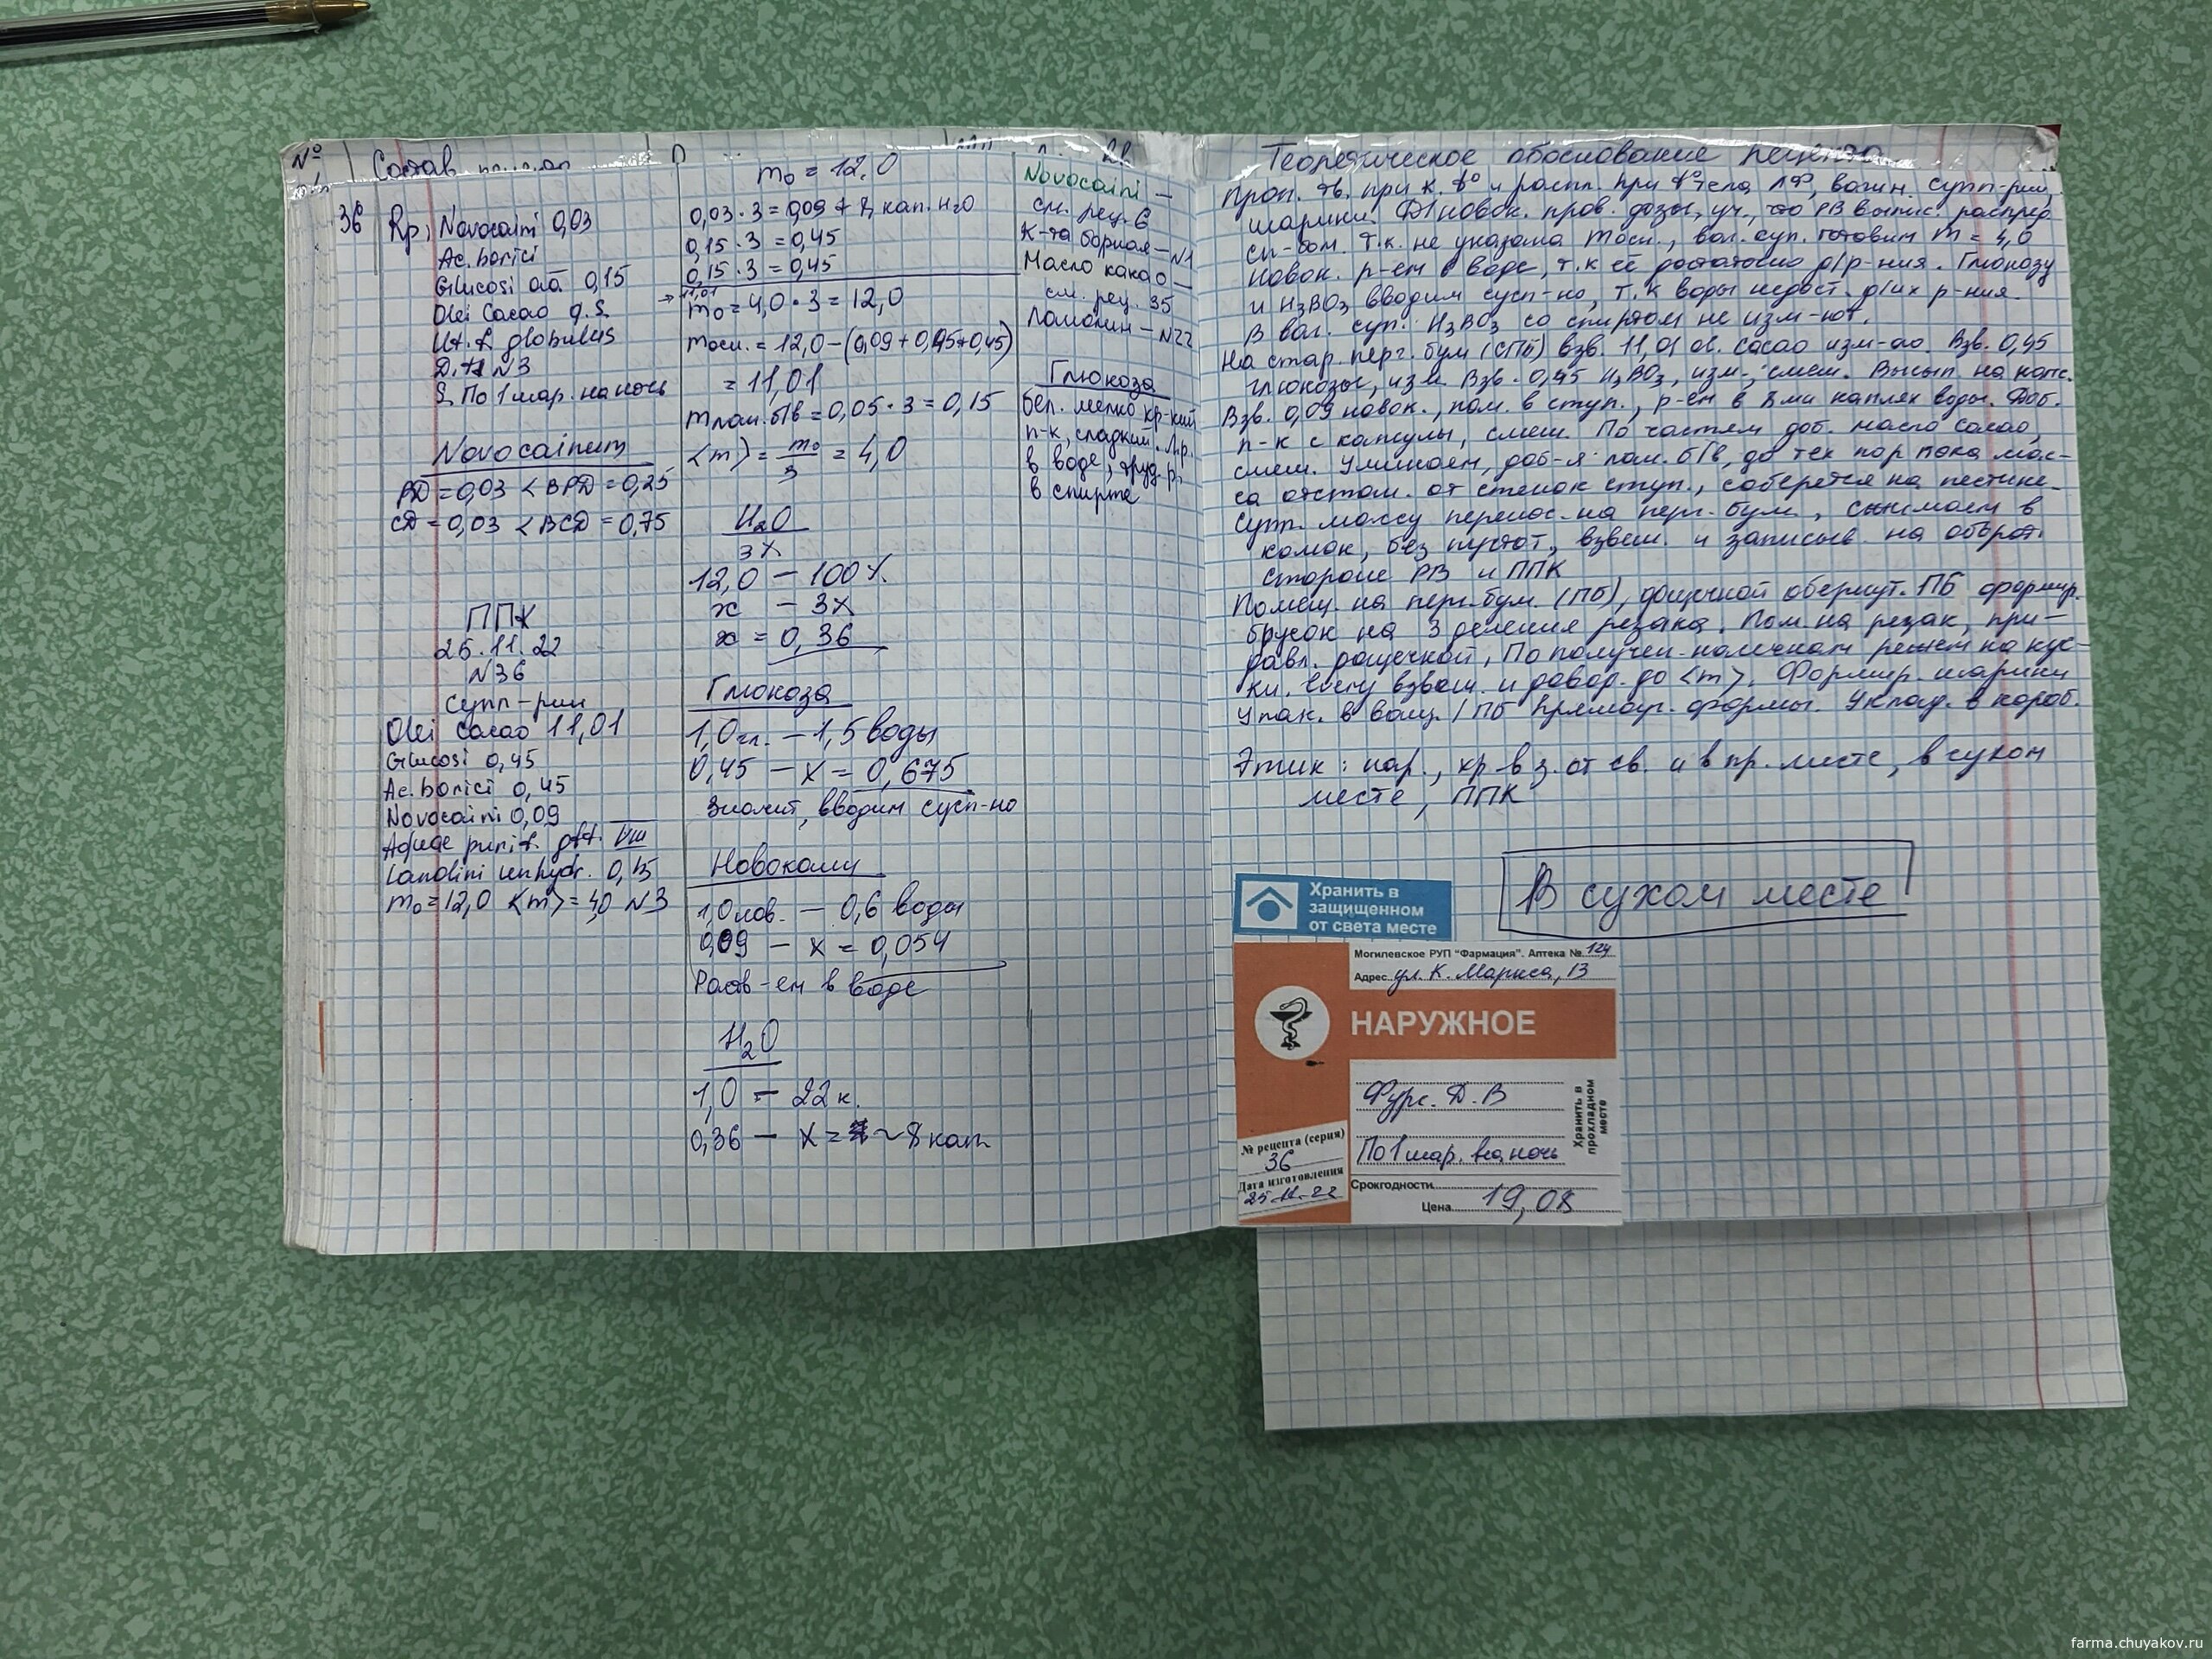 №
Состав
36
Rp.: Novocaini 0,03
Ac. borici
Glucosi aa 0,15
Olei Cacao q.s.
Ut. f. globulus
D. t. N3
S. По 1 шар. на ночь
Novocainum
РД = 0,03 < ВРД = 0,25
СД = 0,03 < ВСД = 0,75
ППК
25.11.22
N36
Супп-рии
Olei Cacao 11,01
Glucosi 0,45
Ac. borici 0,45
Novocaini 0,09
Aquae purif. gtt. VIII
Lanolini unhydr. 0,15
m₀ = 12,0 <m> = 4,0 N3
m₀ = 12,0
0,03 · 3 = 0,09 + 8 кап. H₂O
0,15 · 3 = 0,45
0,15 · 3 = 0,45
→ 11,01
m₀ = 4,0 · 3 = 12,0
mосн. = 12,0 – (0,09 + 0,45 + 0,45)
= 11,01
mлан. б/в = 0,05 · 3 = 0,15
<m> = m₀/3 = 4,0
H₂O
3%
12,0 – 100%
x – 3%
x = 0,36
Глюкоза
1,0 гл. – 1,5 воды
0,45 – x = 0,675
Значит, вводим сусп-но
Новокаин
1,0 нов. – 0,6 воды
0,09 – x = 0,054
Раств-ем в воде
H₂O
1,0 – 22 к.
0,36 – x = ~ 8 кап
Novocaini –
см. рец. 6
К-та борная – N1
Масло какао –
см. рец. 35
Ланолин – N22
Глюкоза
бел. мелко кр-кий
п-к, сладкий. Л.р.
в воде, труд. р.
в спирте
Теоретическое обоснование рецепта
Проп. тв. при к. t° и распл. при t° тела ЛФ, вагин. супп-рии,
шарики. Д/новок. пров. дозы, уч., что РВ выпис. распред.
сп-бом. Т.к. не указана mосн., ваг. суп. готовим m = 4,0
Новок. р-ем в воде, т.к её достаточно д/р-ния. Глюкозу
и H₃BO₃ вводим сусп-но, т.к воды недост. д/их р-ния.
В ваг. суп. H₃BO₃ со спиртом не изм-ют.
На стар. перг. бум (СПБ) взв. 11,01 ol. cacao изм-ао. Взв. 0,45
глюкозы, изм. Взв. 0,45 H₃BO₃, изм., смеш. Высып. на капс.
Взв. 0,09 новок., пом. в ступ., р-ем в 8ми каплях воды. Доб.
п-к с капсулы, смеш. По частям доб. масло cacao,
смеш. Уминаем, доб-я лан. б/в, до тех пор пока мас-
са отстан. от стенок ступ., соберется на пестике.
Супп. массу перенос. на перг. бум., сжимаем в
комок, без пустот, взвеш. и записыв. на оборот.
стороне РВ и ППК
Помещ. на перг. бум. (ПБ), дощечкой обернут. ПБ формир.
брусок на 3 деления резака. Пом на резак, при-
давл. дощечкой, По получен. меткам режем на кус-
ки. взвеш. и довод. до <m>. Формир. шарики
Упак. в вощ./ПБ прямоуг. формы. Уклад. в короб.
Этик: нар., хр в з. от св. и в пр. месте, в сухом
месте, ППК
В сухом месте
Хранить в
защищенном
от света месте
Могилевское РУП "Фармация". Аптека № 124
Адрес ул. К. Маркса, 13
НАРУЖНОЕ
Фурс. Д. В
По 1 шар. на ночь
Хранить в
прохладном
месте
№ рецепта (серия)
36
Дата изготовления
25.11.22
Срок годности
Цена 19,08
farma.chuyakov.ru